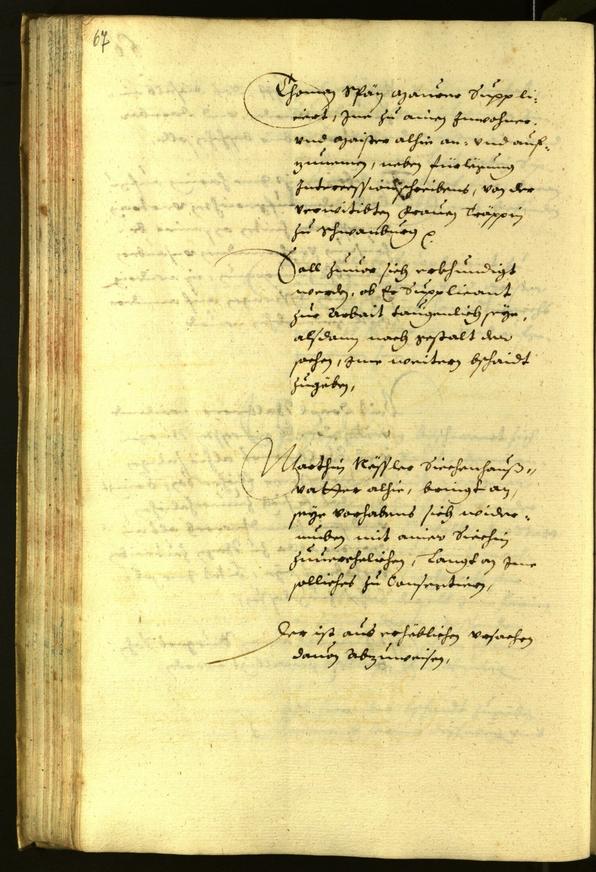 67
Thoman Späz Maurer Suppli-
ciert, Jne zu ainen Inwohner
vnd Maister alhie an- vnd auf-
zunemen, neben fürlegung
Intercessionschreibens, von der
verwittibten Frauen Träppin
zu Schwanburg
Soll zuuor sich erkhundigt
werden, ob Er Supplicant
zur Arbait taugenlich seye,
alsdann nach gestalt der
sachen, Jme weitern bschaidt
zugeben,
Marthin Kässler Siechenhauß-
vatter alhie, bringt an,
seye vorhabens sich wider-
umben mit ainer Siechin
zuuerehelichen, Langt an Jme
solliches zu Consentiern,
Der ist aus erheblichen vrsachen
dauon Abzuweisen,